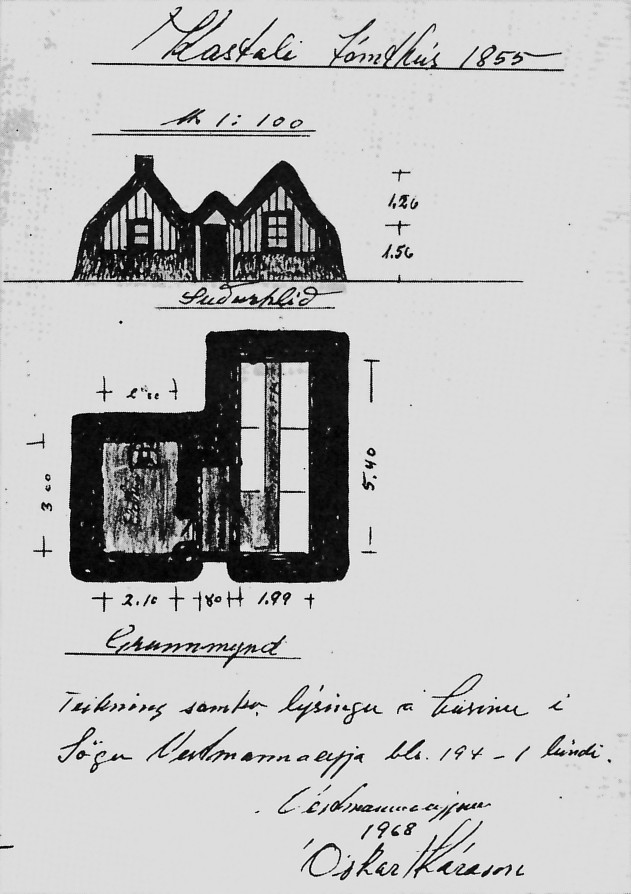 Kastali tómthús 1855
M 1:100
1,26
1.56
Suðurhlið
3 00
5.40
2.10 80 1.99
Grunnmynd
Teikning samkv. lýsingu á húsinu í
Sögu Vestmannaeyja bls. 194 - 1 bindi.
Vestmannaeyjum
1968
Óskar Kárason